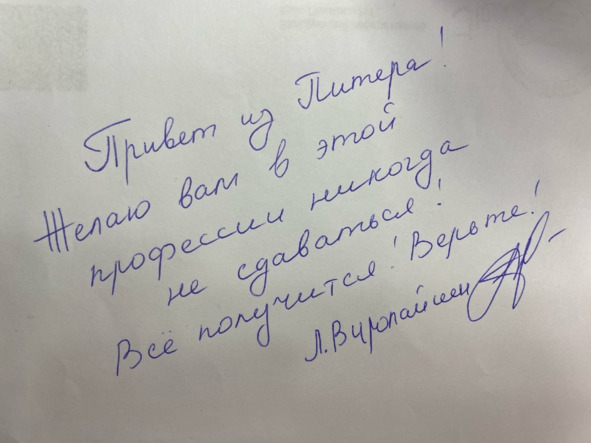 Привет из Питера!
Желаю вам в этой
профессии никогда
не сдаваться!
Всё получится! Верьте!
Л.